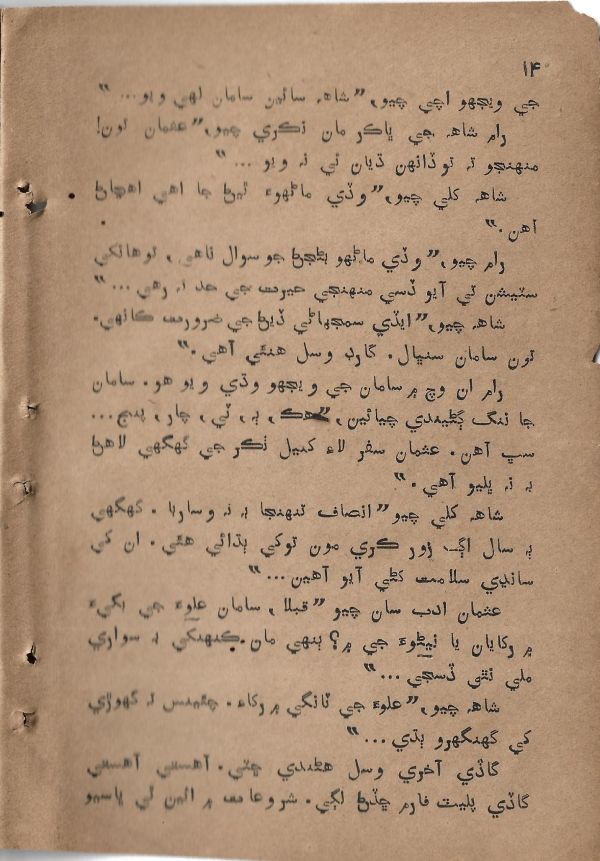 ۱۴
جي ويجهو اچي چيو، ”شاهہ سائين سامان لهي ويو...“
رام شاهہ جي ڀاڪر مان نڪري چيو، ”عثمان تون!
منهنجو تہ توڏانهن ڌيان ئي نہ ويو ...“
شاهہ کلي چيو، ”وڏي ماڻهوءَ ٿيڻ جا اهي اهڃاڻ
آهن.“
رام چيو، ”وڏي ماڻهو بڻجڻ جو سوال ناهي، توهانکي
سٽيشن تي آيو ڏسي منهنجي حيرت جي حد نہ رهي...“
شاهہ چيو، ”ايڏي سمجهاڻي ڏيڻ جي ضرورت ڪانهي.
تون سامان سنڀال. گارڊ وسل هنئي آهي.“
رام ان وچ ۾ سامان جي ويجهو وڌي ويو هو. سامان
جا ننگ ڳڻيندي چيائين، ”هڪ، ٻہ، ٽي، چار، پنج...
سڀ آهن. عثمان سفر لاءِ کنيل ٺڪر جي گهگهي لاهڻ
بہ نہ ڀليو آهي.“
شاهہ کلي چيو ”انصاف تنهنجا بہ نہ وساريا. گهگهي
ٻہ سال اڳ زور ڪري مون توکي ٻڌائي هئي. ان کي
سانڍي سلامت کڻي آيو آهين...“
عثمان ادب سان چيو ”قبلا، سامان علوءَ جي بگيءَ
۾ رکايان يا نيڻوءَ جي ۾؟ ٻنهي مان ڪنهنکي بہ سواري
ملي نٿي ڏسجي...“
شاهہ چيو، ”علوءَ جي ٽانگي ۾ رکاءِ. چئينس تہ گهوڙي
کي گهنگهرو ٻڌي...“
گاڏي آخري وسل هڻندي چٽي. آهستي آهستي
گاڏي پليٽ فارم ڇڏڻ لڳي. شروعات ۾ ائين ٿي ڀاسيو